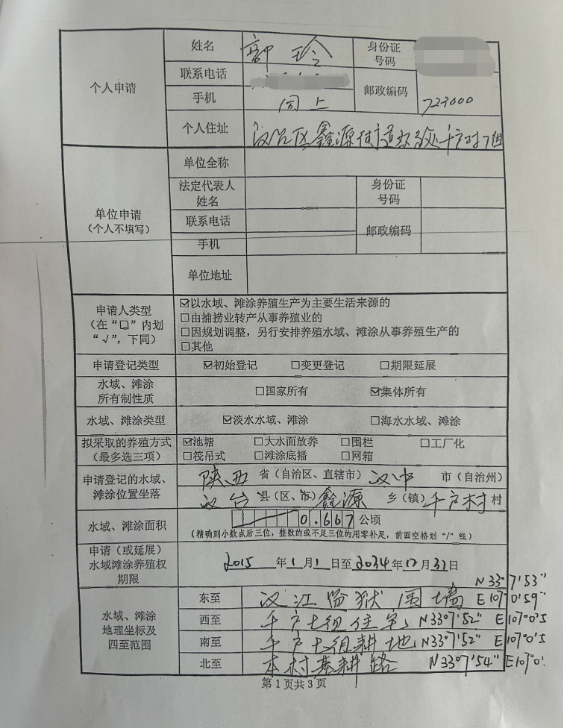 个人申请
姓名 郭玲 身份证号码
联系电话
手机 同上 邮政编码 723000
个人住址 汉台区鑫源街道办事处千户村7组
单位申请
(个人不填写)
单位全称
法定代表人姓名 身份证号码
联系电话 邮政编码
手机
单位地址
申请人类型
(在“□”内划
“√”,下同)
☑以水域、滩涂养殖生产为主要生活来源的
□由捕捞业转产从事养殖业的
□因规划调整,另行安排养殖水域、滩涂从事养殖生产的
□其他
申请登记类型 ☑初始登记 □变更登记 □期限延展
水域、滩涂
所有制性质 □国家所有 ☑集体所有
水域、滩涂类型 ☑淡水水域、滩涂 □海水水域、滩涂
拟采取的养殖方式
(最多选三项)
☑池塘 □大水面放养 □围栏 □工厂化
□筏吊式 □滩涂底播 □网箱
申请登记的水域、
滩涂位置坐落
陕西 省(自治区、直辖市) 汉中 市(自治州)
汉台 县(区、市) 鑫源 乡(镇) 千户村 村
水域、滩涂面积 0.667 公顷
(精确到小数点后三位,整数的或不足三位的用零补足,前面空格划“/”线)
申请(或延展)
水域滩涂养殖权
期限
2015 年 1 月 1 日至 2034 年 12 月 31 日
水域、滩涂
地理坐标及
四至范围
N33°7′53″
东至 汉江监狱围墙 E107°0′59″
西至 千户七组住宅 N33°7′52″ E107°0′5
南至 千户七组耕地 N33°7′52″ E107°0′5
北至 本村基耕路 N33°7′54″ E107°0′
第1页共3页